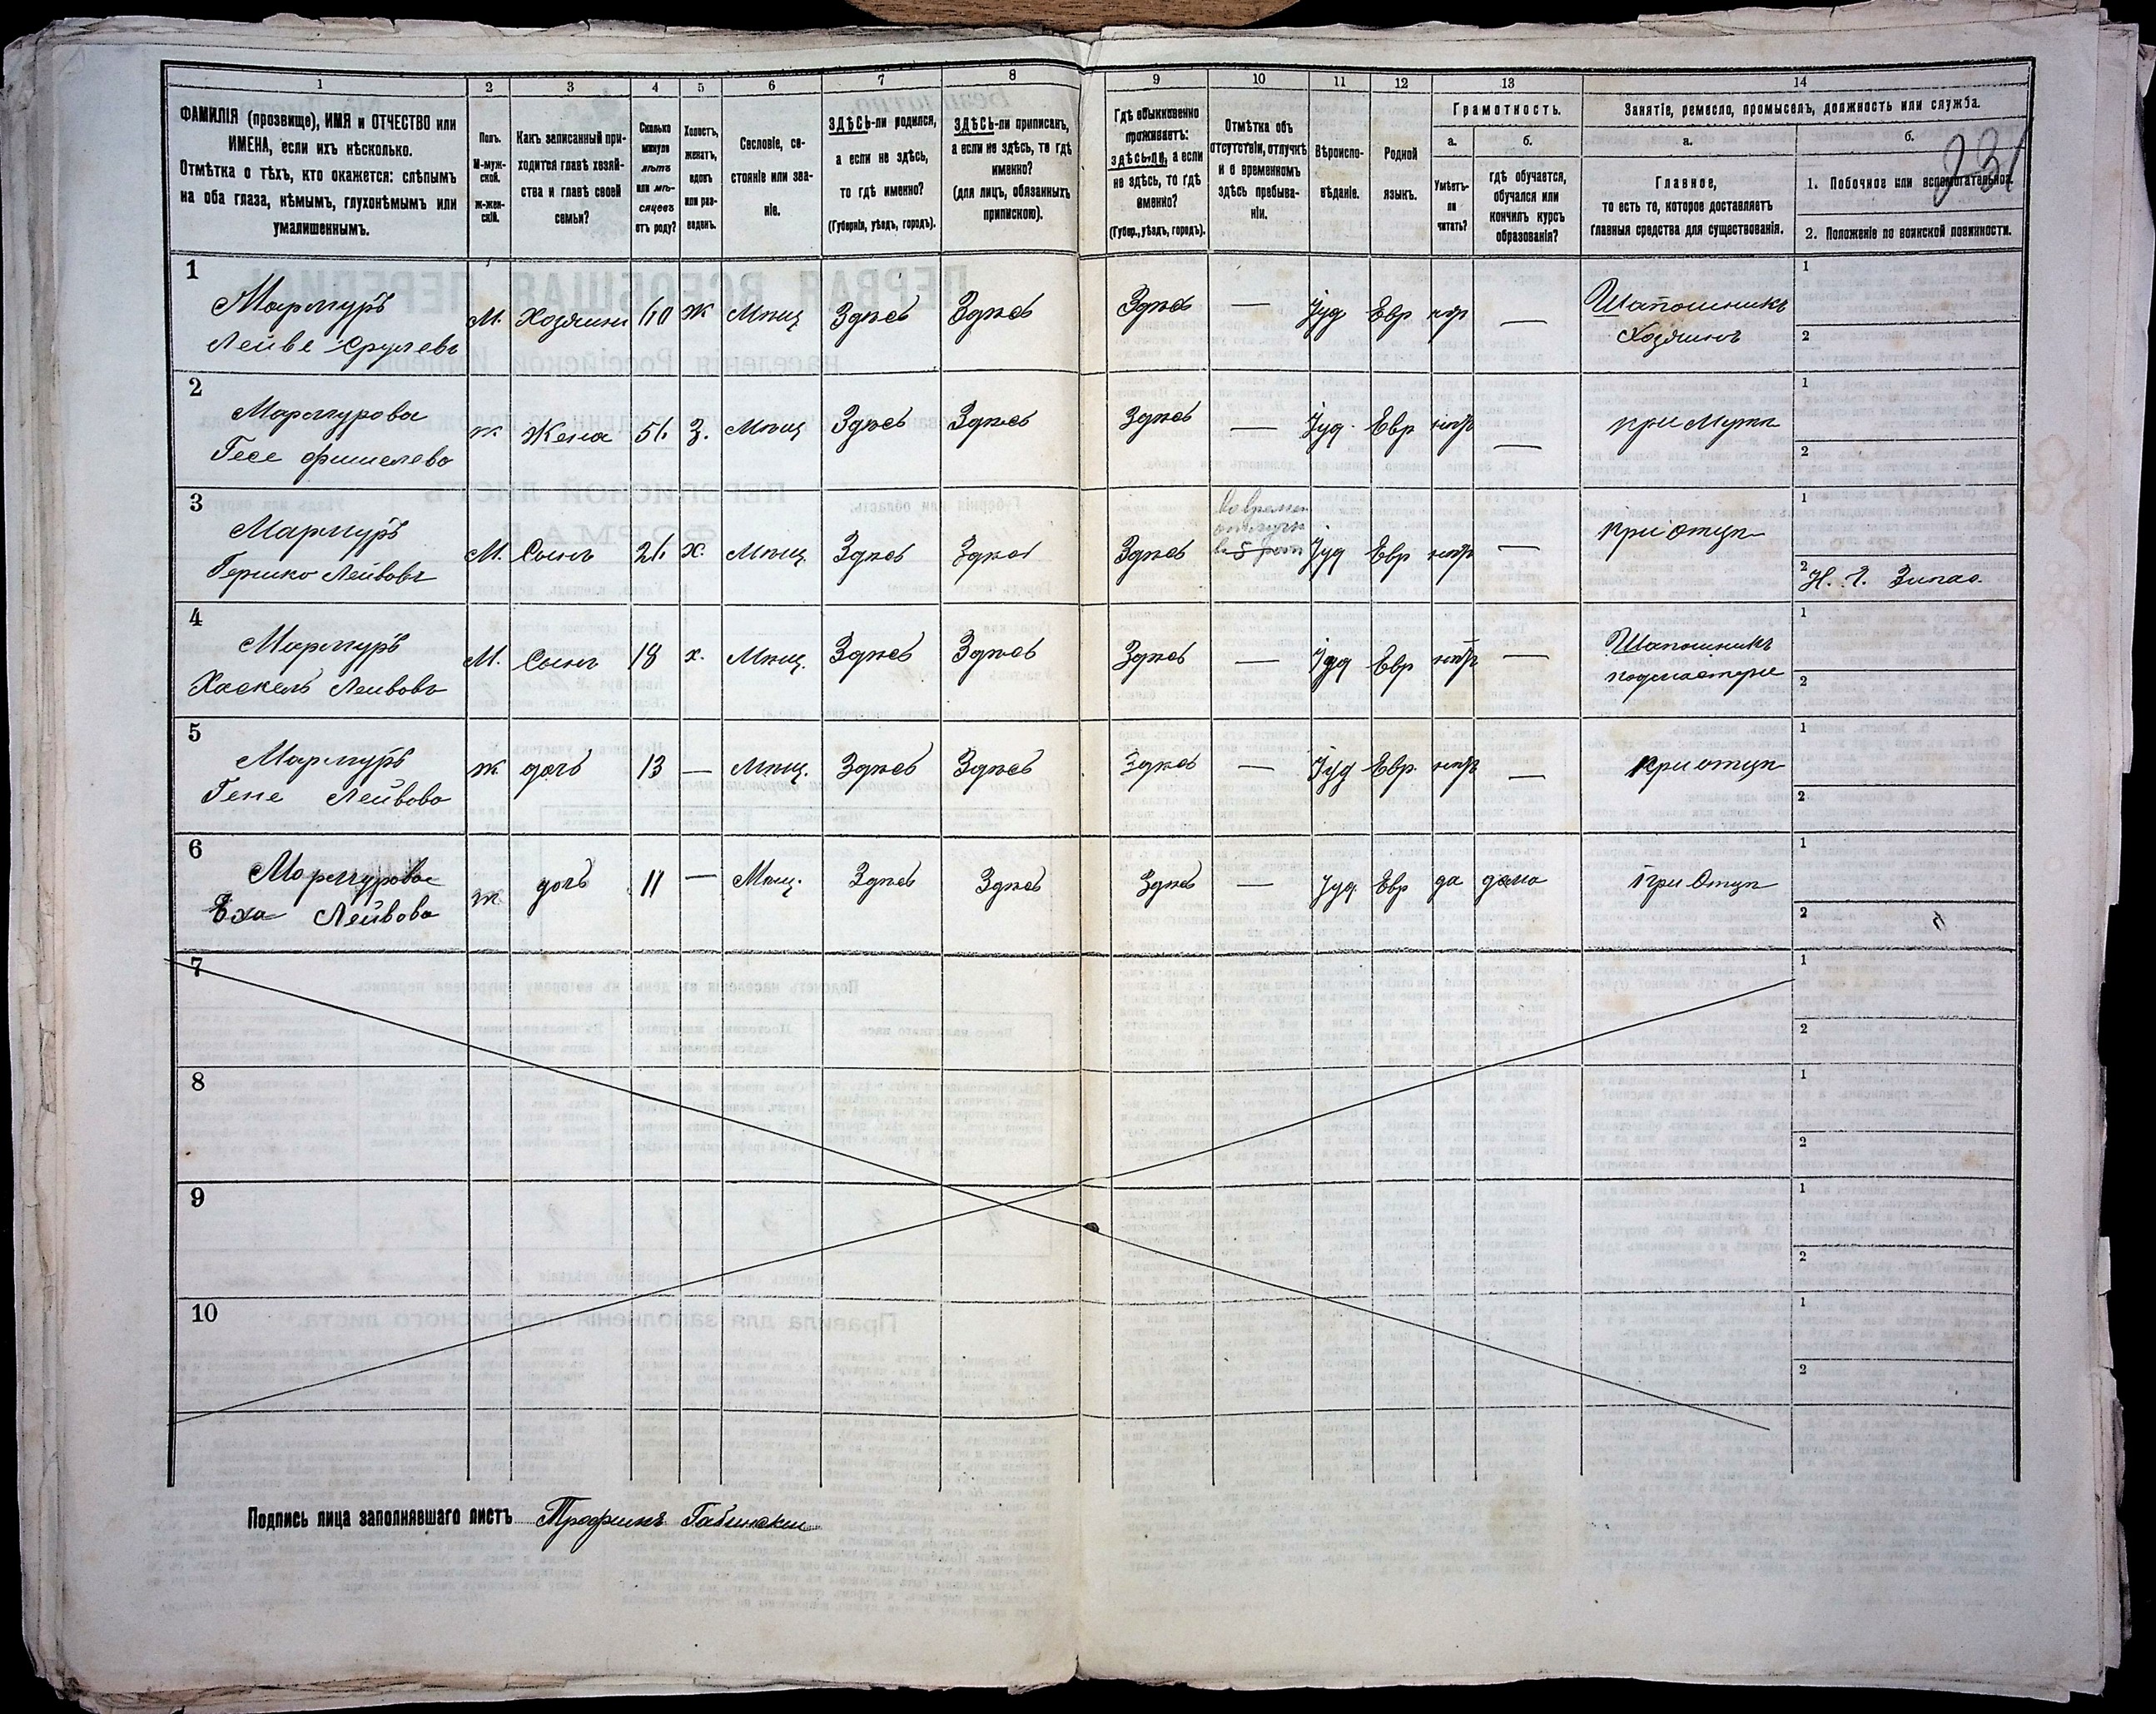 1 2 3 4 5 6 7 8 9 10 11 12 13 14
ФАМИЛІЯ (прозвище), ИМЯ и ОТЧЕСТВО или
ИМЕНА, если ихъ нѣсколько.
Отмѣтка о тѣхъ, кто окажется: слѣпымъ
на оба глаза, нѣмымъ, глухонѣмымъ или
умалишеннымъ.
Полъ.
М-муж-
ской.
Ж-жен-
скій.
Какъ записанный при-
ходится главѣ хозяй-
ства и главѣ своей
семьи?
Сколько
минуло
лѣтъ
или мѣ-
сяцевъ
отъ роду?
Холостъ,
женатъ,
вдовъ
или раз-
веденъ.
Сословіе, со-
стояніе или зва-
ніе.
ЗДѢСЬ-ли родился,
а если не здѣсь,
то гдѣ именно?
(Губернія, уѣздъ, городъ).
ЗДѢСЬ-ли приписанъ,
а если не здѣсь, то гдѣ
именно?
(для лицъ, обязанныхъ
припискою).
Гдѣ обыкновенно
проживаетъ:
здѣсь-ли, а если
не здѣсь, то гдѣ
именно?
(Губер., уѣздъ, городъ).
Отмѣтка объ
отсутствіи, отлучкѣ
и о временномъ
здѣсь пребыва-
ніи.
Вѣроиспо-
вѣданіе.
Родной
языкъ.
Грамотность.
а.
Умѣетъ-
ли
читать?
б.
гдѣ обучается,
обучался или
кончилъ курсъ
образованія?
Занятіе, ремесло, промыселъ, должность или служба.
а.
Главное,
то есть то, которое доставляетъ
главныя средства для существованія.
б.
1. Побочное или вспомогательное
2. Положеніе по воинской повинности.
231
1
Мармуръ
Лейве Срулевъ
М. Хозяинъ 60 ж Мѣщ Здѣсь Здѣсь Здѣсь — Іуд Евр —
Шапошникъ
Хозяинъ
1
2
2
Мармурова
Гесе Фишелева
ж Жена 56 З. Мѣщ Здѣсь Здѣсь Здѣсь — Іуд. Евр нѣтъ —
при мужѣ
1
2
3
Мармуръ
Гершко Лейвовъ
М. Сынъ 26 х. Мѣщ. Здѣсь Здѣсь Здѣсь
Іуд Евр нѣтъ —
при отцѣ
1
2
4
Мармуръ
Хаскель Лейвовъ
М. Сынъ 18 х. Мѣщ. Здѣсь Здѣсь Здѣсь — Іуд Евр нѣтъ —
Шапошникъ
подмастерье
1
2
5
Мармуръ
Гене Лейвова
ж дочь 13 — Мѣщ. Здѣсь Здѣсь Здѣсь — Іуд Евр. нѣтъ —
при отцѣ
1
2
6
Мармурова
Лейвова
ж дочь 11 — Мѣщ. Здѣсь Здѣсь Здѣсь — Іуд. Евр да дома
при Отцѣ
1
2
7
1
2
8
1
2
9
1
2
10
1
2
Подпись лица заполнявшаго листъ